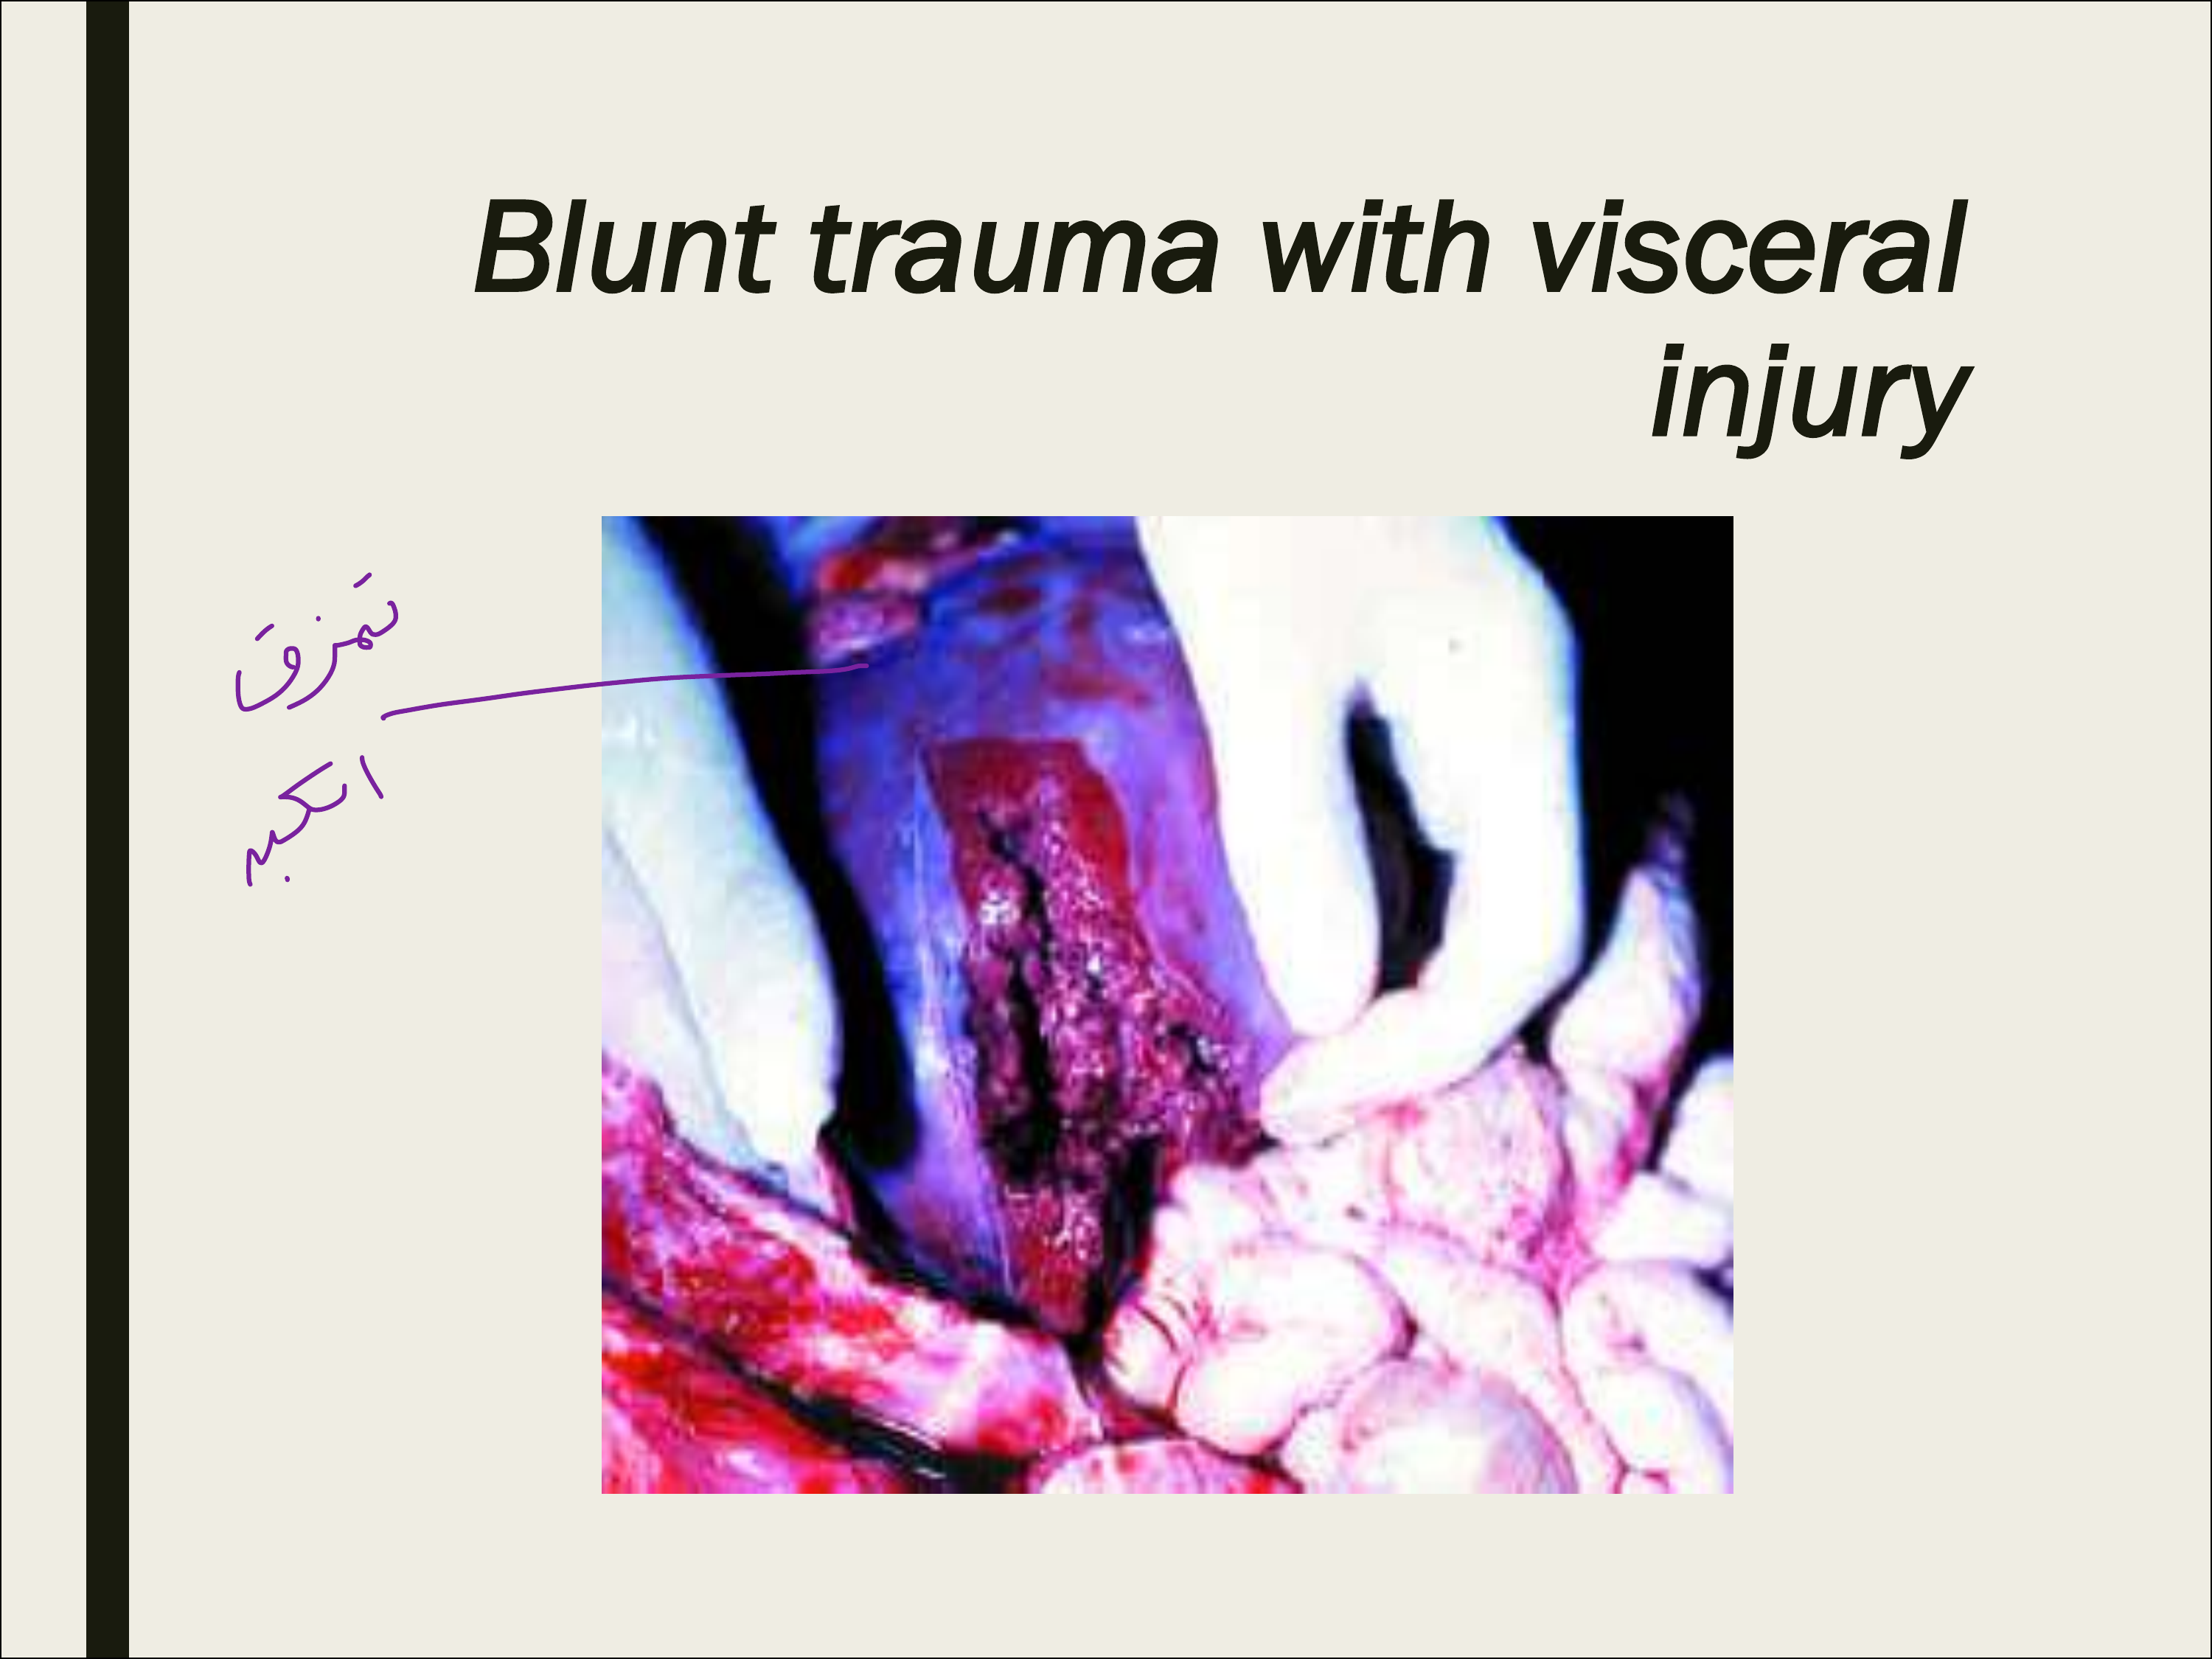 Blunt trauma with visceral
injury
تمزق
الكبد